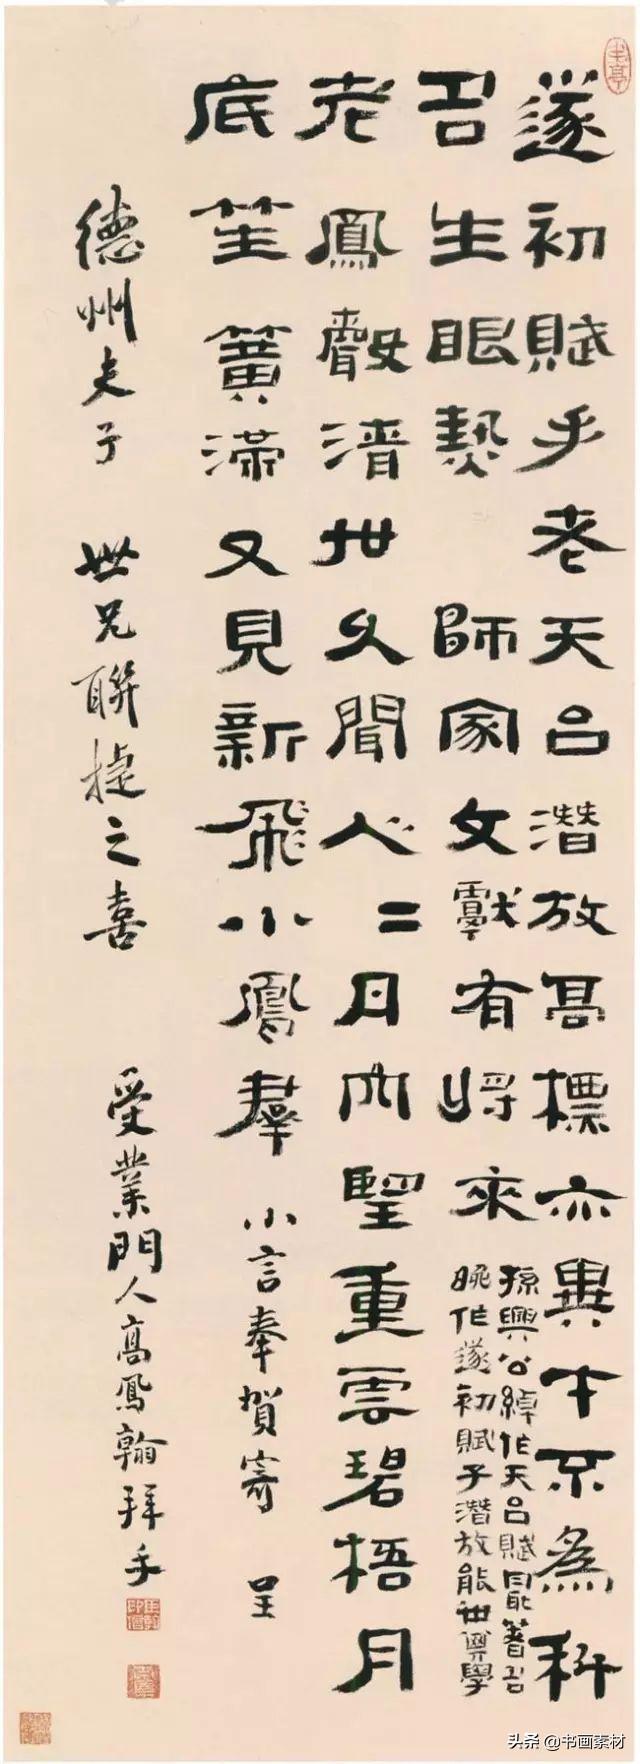 遂初賦手老天台潛放高標亦異才不為科
名生眼熱 師家文獻有將來
孫興公綽作天台賦最著名
晚作遂初賦子潛放能世學
老鳳聲清世久聞人二月內望重雲碧梧月
底笙簧滿又見新飛小鳳羣 小言奉賀寄 呈
德州夫子 世兄聯捷之喜 受業門人高鳳翰拜手
半亭
头条 @书画素材